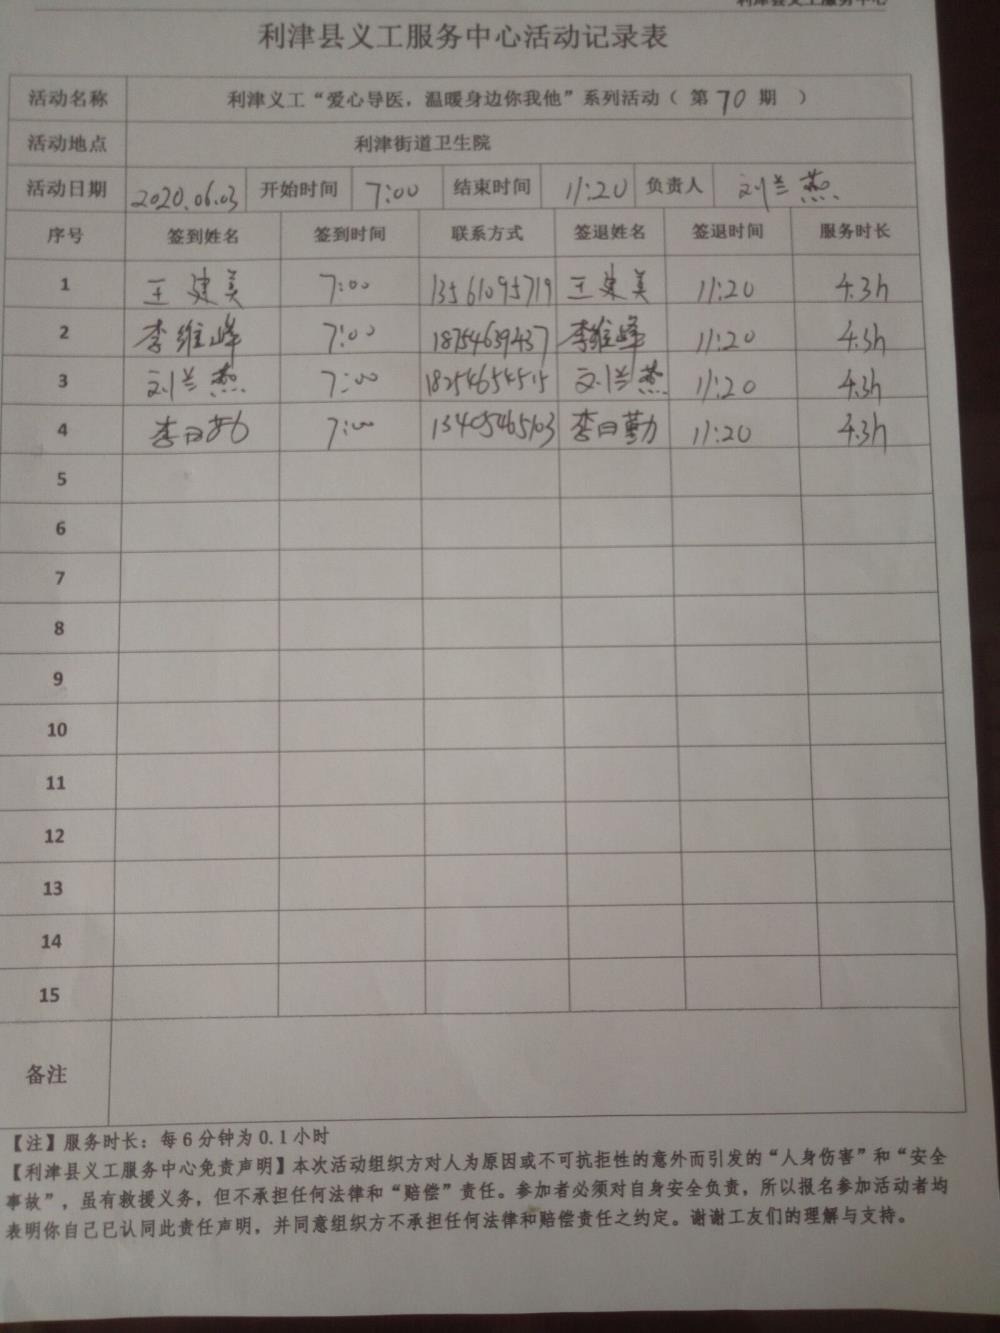 利津县义工服务中心
利津县义工服务中心活动记录表
活动名称 利津义工“爱心导医，温暖身边你我他”系列活动（ 第 70 期 ）
活动地点 利津街道卫生院
活动日期 2020.06.03 开始时间 7:00 结束时间 11:20 负责人 刘兰燕
序号 签到姓名 签到时间 联系方式 签退姓名 签退时间 服务时长
1 王建美 7:00 13561095719 王建美 11:20 4.3h
2 李维峰 7:00 18754639437 李维峰 11:20 4.3h
3 刘兰燕 7:00 18254654515 刘兰燕 11:20 4.3h
4 李曰勤 7:00 13405465103 李曰勤 11:20 4.3h
5
6
7
8
9
10
11
12
13
14
15
备注
【注】服务时长：每6分钟为0.1小时
【利津县义工服务中心免责声明】本次活动组织方对人为原因或不可抗拒性的意外而引发的“人身伤害”和“安全
事故”，虽有救援义务，但不承担任何法律和“赔偿”责任。参加者必须对自身安全负责，所以报名参加活动者均
表明你自己已认同此责任声明，并同意组织方不承担任何法律和赔偿责任之约定。谢谢工友们的理解与支持。